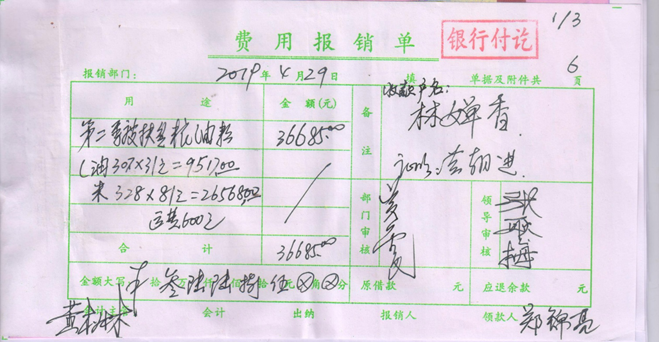 1/3
费用报销单
银行付讫
报销部门: 2019年4月29日 填 单据及附件共 6 页
用途 金额(元) 备注 收款户名:
林婵香
第二季被扶 粮油款 36685.00
(油307×31元=9517.00
米328×81元=26568.00
运费600元
部门审核 领导审核
合计 36685.00
金额大写 叁 陆 陆 捌 伍 元 ⊗ 角 ⊗ 分 原借款 元 应退余款 元
会计 出纳 报销人 领款人 郑锦亮